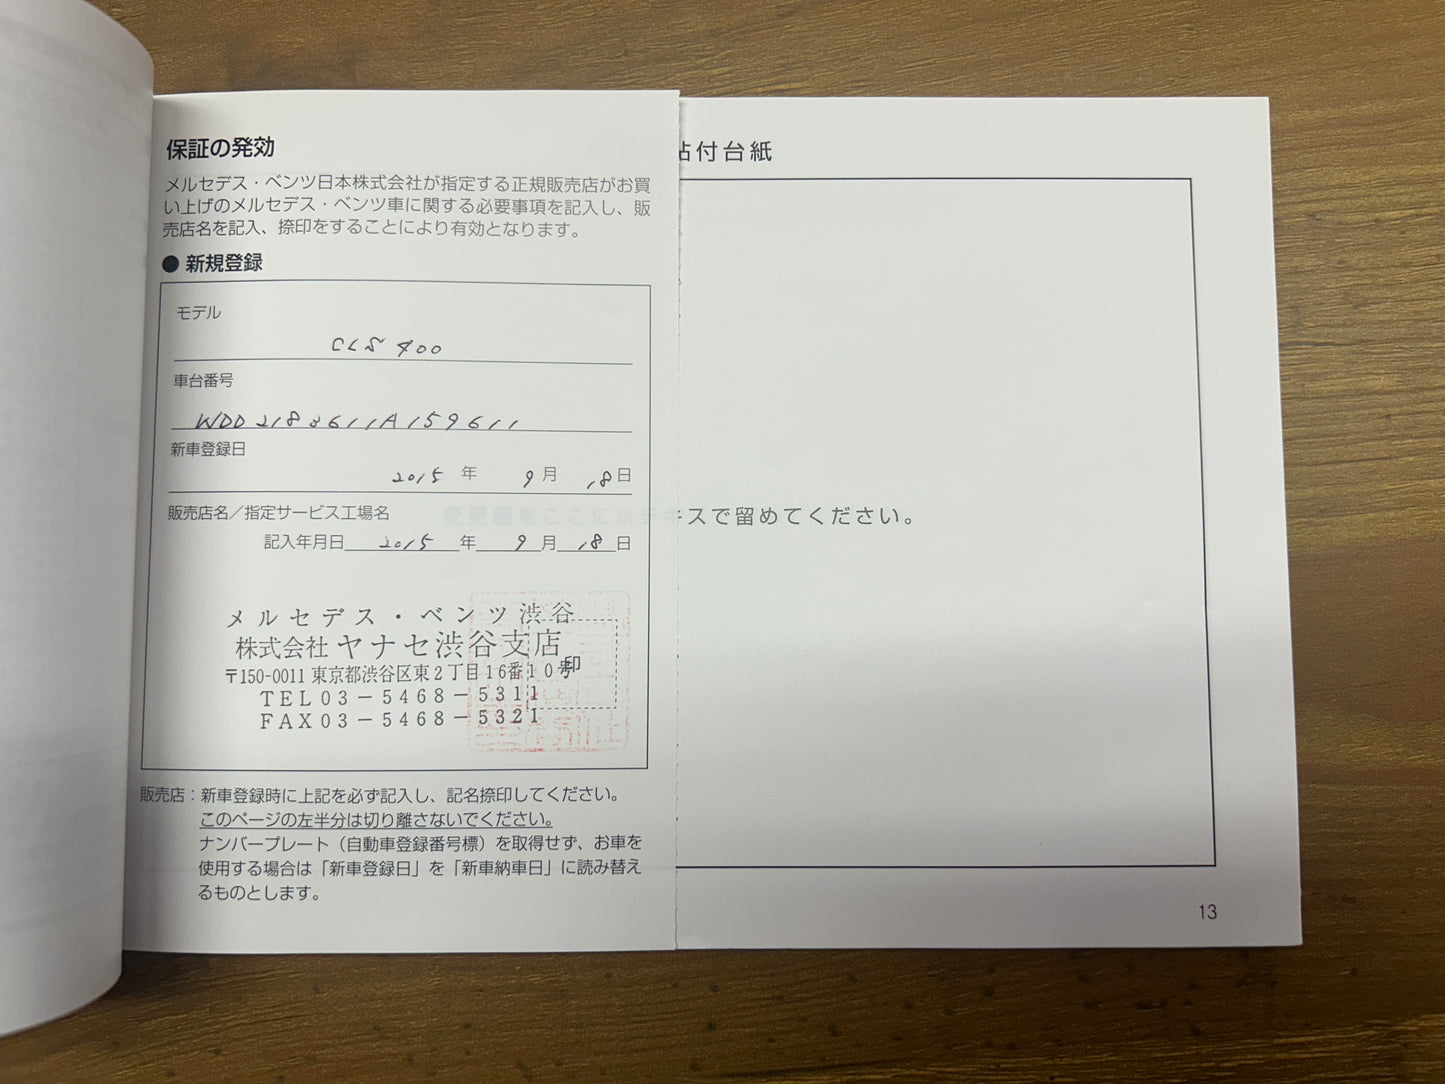 保証の発効
メルセデス・ベンツ日本株式会社が指定する正規販売店がお買
い上げのメルセデス・ベンツ車に関する必要事項を記入し、販
売店名を記入、捺印をすることにより有効となります。
● 新規登録
モデル
CLS 400
車台番号
WDD2183611A159611
新車登録日
2015 年 9 月 18 日
販売店名／指定サービス工場名
記入年月日 2015 年 9 月 18 日
メルセデス・ベンツ渋谷
株式会社 ヤナセ渋谷支店
〒150-0011 東京都渋谷区東2丁目16番10号
印
TEL03－5468－5311
FAX03－5468－5321
販売店：新車登録時に上記を必ず記入し、記名捺印してください。
このページの左半分は切り離さないでください。
ナンバープレート（自動車登録番号標）を取得せず、お車を
使用する場合は「新車登録日」を「新車納車日」に読み替え
るものとします。
貼付台紙
変更届をここにホチキスで留めてください。
13